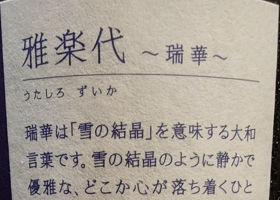 雅楽代 ～瑞華～
うたしろ ずいか
瑞華は「雪の結晶」を意味する大和
言葉です。雪の結晶のように静かで
優雅な、どこか心が落ち着くひと